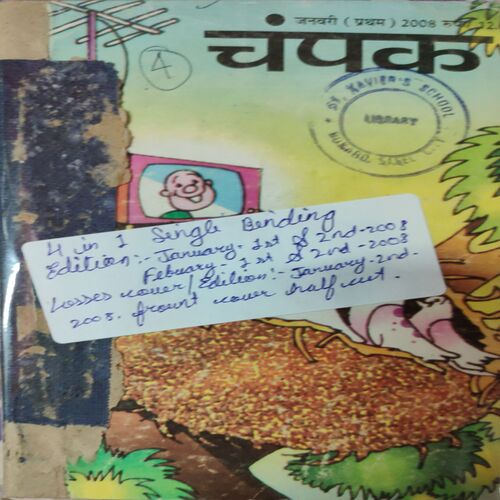 जनवरी ( प्रथम ) 2008 रुपए 12.
चंपक
4
ST. XAVIER'S SCHOOL
LIBRARY
BOKARO STEEL CITY
4 in 1 Single Bending
Edition:- January - 1st & 2nd - 2008
Febuary - 1st & 2nd - 2008
Losses cover/Edition:- January - 2nd -
2008. frount cover half cut.